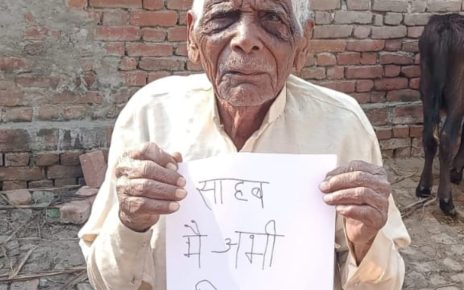 साहब
मै अभी